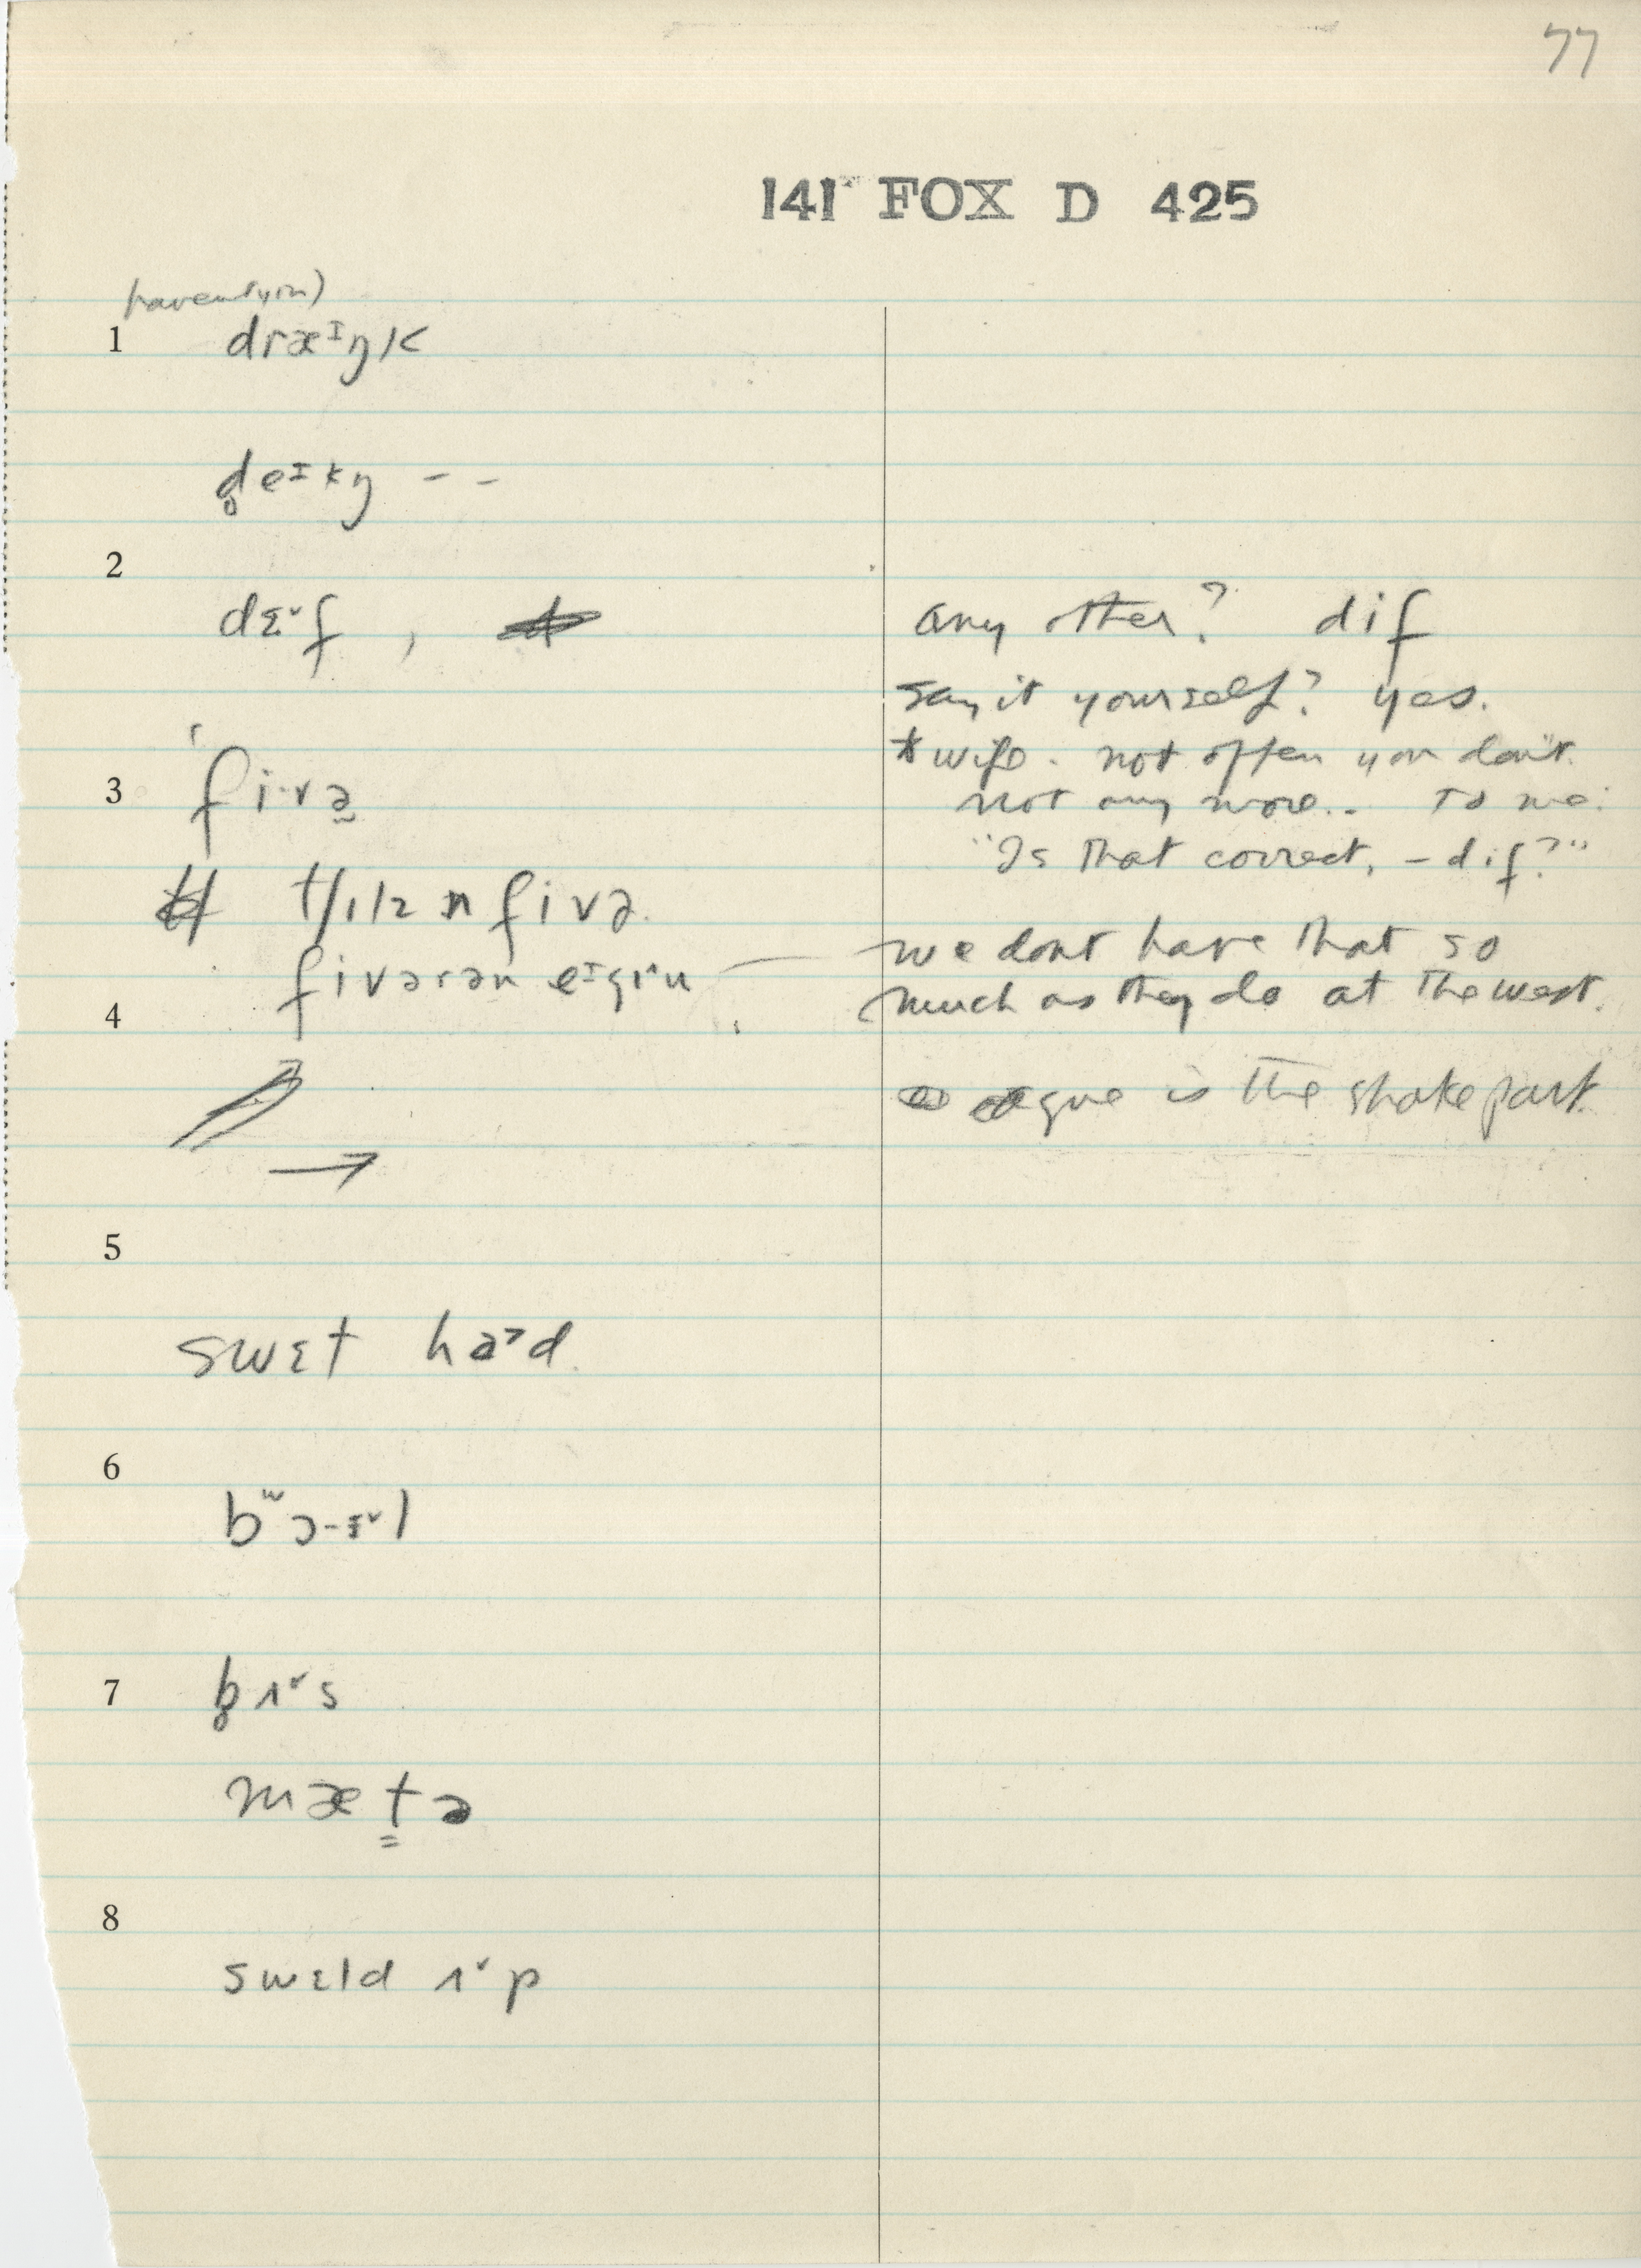 77
141 FOX D 425
1 dræᶦŋk
d̥eᶦkŋ - -
2
dɛˇf , any other? dif
say it yourself? yes.
wife. not often you don't.
3 fi·və̱ not any more.. To me:
"Is that correct, – dif?"
tʃɪlz n fivə.
fivərən eᶦgɪˇu — we dont have that so
4 much as they do at the west.
ague is the shake part.
→
5
swɛt ha˃d.
6
bʷɔ-ɪˇl
7 b̥ʌˇs
mætə
8
swɛld ʌˇp